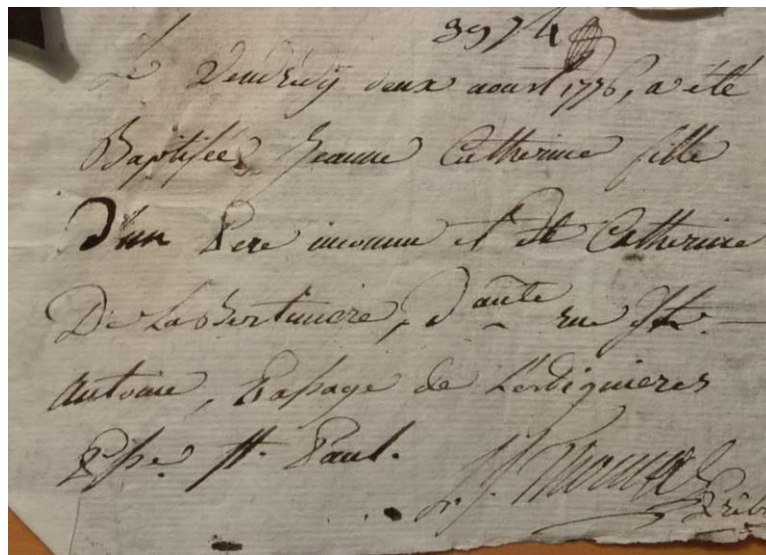 3974
Le Vendredy deux aoust 1776, a été
Baptisée Jeanne Catherine fille
D'un Pere inconnu et de Catherine
De La Bertiniere, Dte rue St.
Antoine, Passage de Lesdiguieres
Psse. St. Paul.
Thomas Prêtre